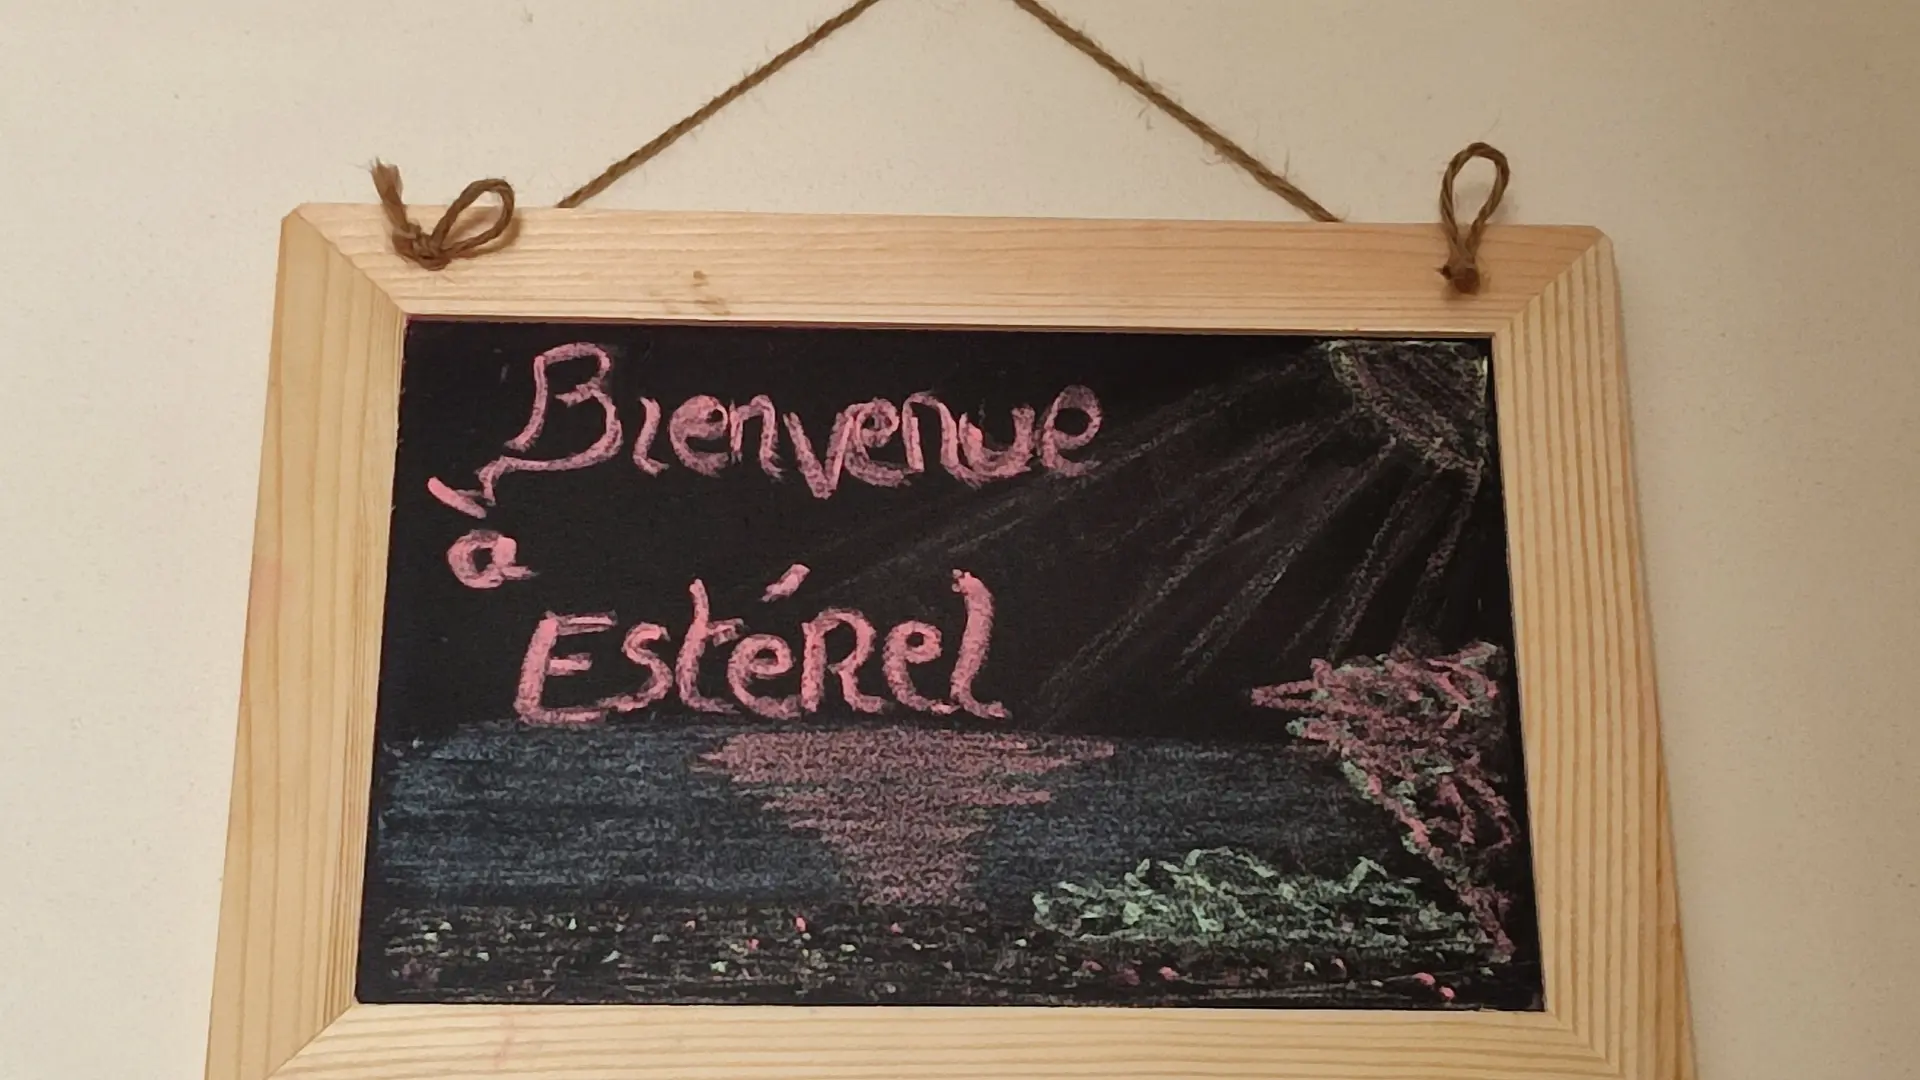 Bienvenue
à
Estérel